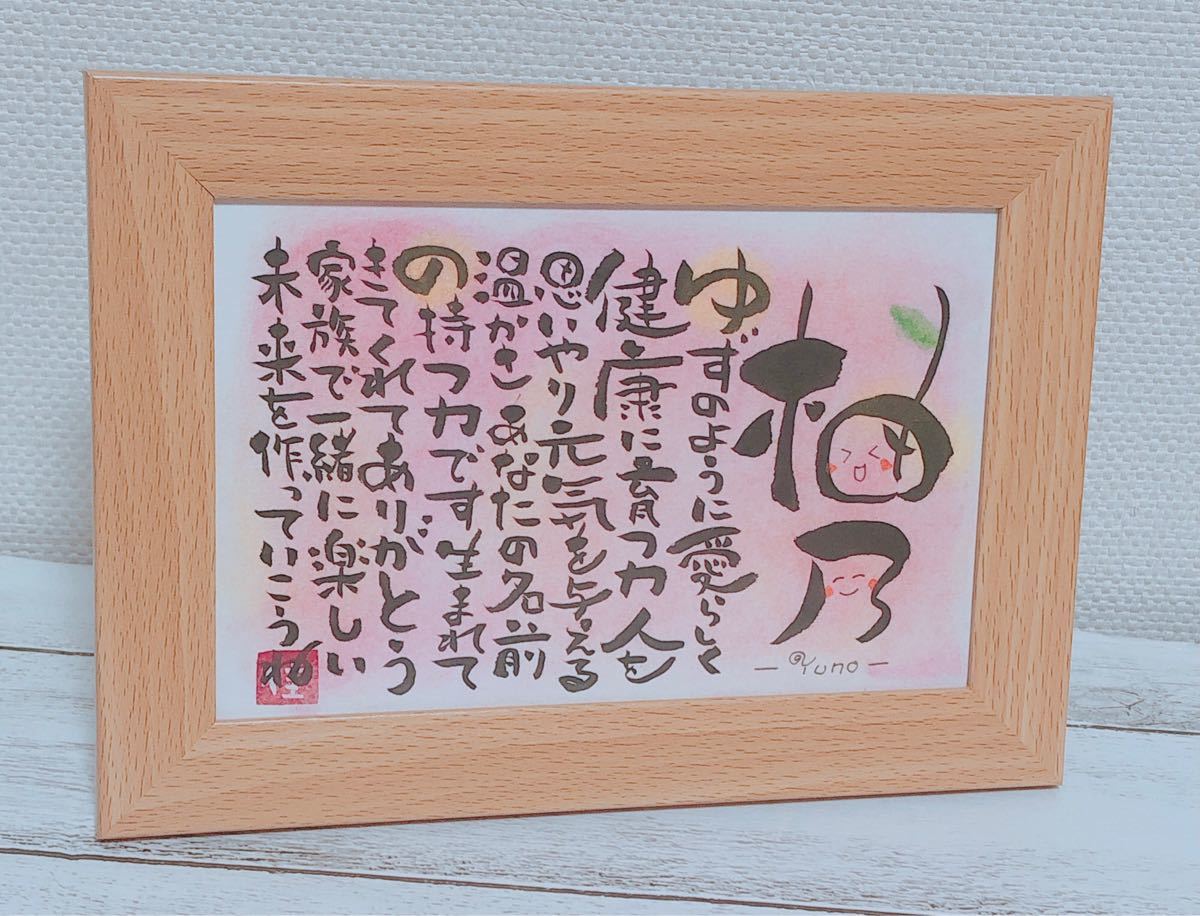 柚乃
Yuno
ゆずのように愛らしく
健康に育つ力人を
思いやり元気を与える
温かさあなたの名前
の持つ力です生まれて
きてくれてありがとう
家族で一緒に楽しい
未来を作っていこうね